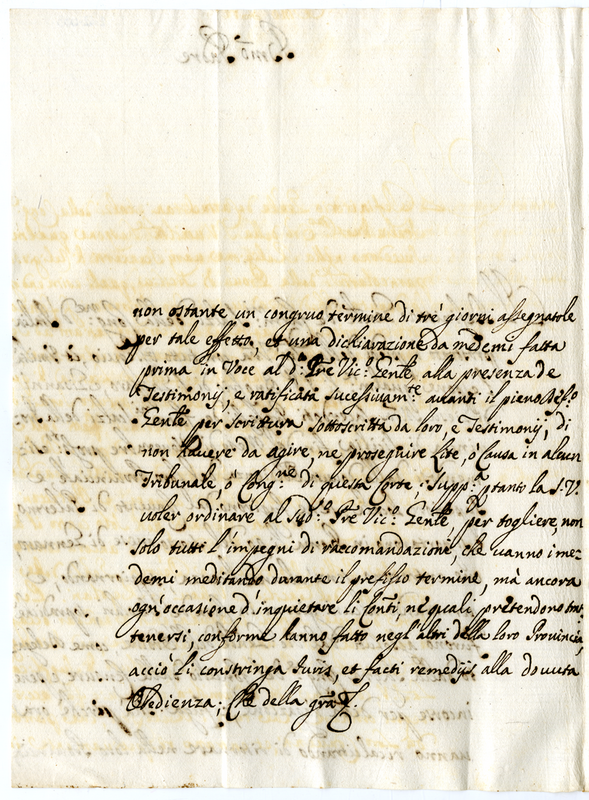 non ostante un congruo termine di trè giorni assegnatole
per tale effetto, et una dichiarazione da medemi fatta
prima in Voce al d.o Pre Vic.o Gen̄le alla presenza de
Testimonij, e ratificata sucessivam.te avanti il pieno Def.o
Gen̄le per scrittura sottoscritta da loro, e Testimonij, di
non havere da agire, ne proseguire Lite, ò Causa in alcun
Tribunale, ò Cong.ne di questa Corte; Supp.a p̄tanto la S.V.
voler ordinare al sud.o Pre Vic.o Gen̄le, per togliere, non
solo tutti l'impegni di raccomandazione, che vanno i me-
demi meditando durante il prefisso termine, mà ancora
ogn'occasione d'inquietare li Con̄ti, ne quali pretendono trat
tenersi, conforme hanno fatto negl'altri della loro Provincia,
acciò li constringa Juris, et facti remedijs alla dovuta
Obedienza; Che della gra̅